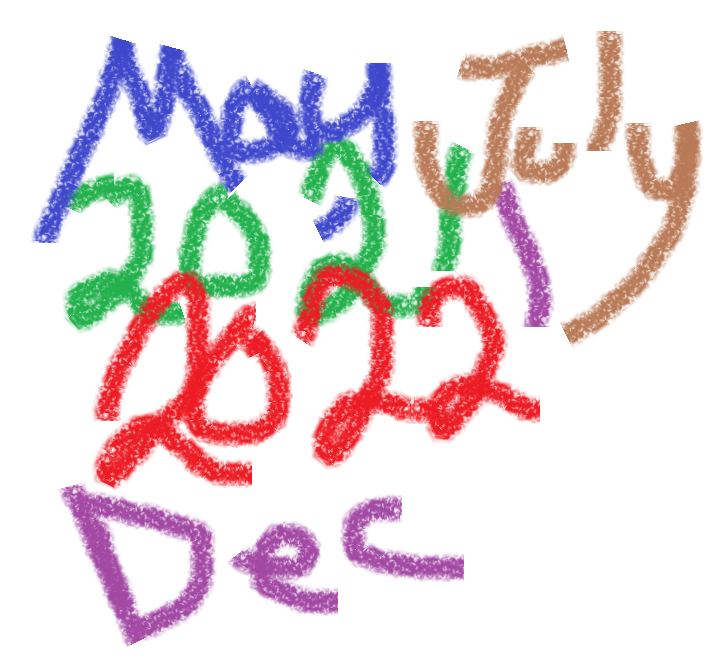 May July
2021
2022
Dec